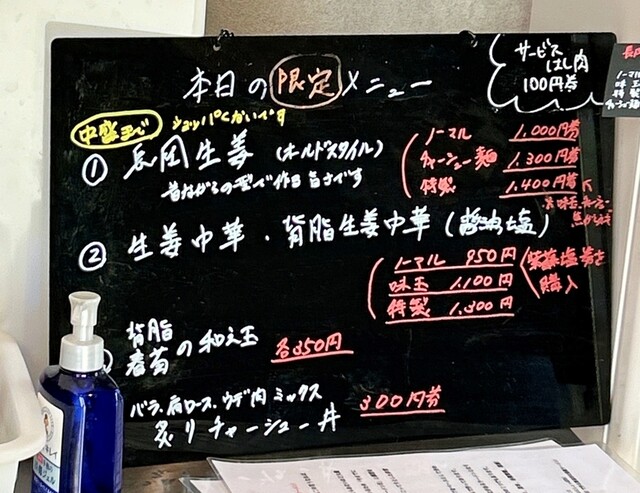 本日の限定メニュー
サービス
はし肉
100円券
中盛まで
ショッパくないです
① 長岡生姜 (オールドスタイル)
昔ながらの型で作る旨さです
ノーマル 1.000円券
チャーシュー麺 1.300円券
特製 1.400円券
② 生姜中華・背脂生姜中華 (醤油塩)
ノーマル 950円
味玉 1.100円
特製 1.300円
紫藻塩券を
購入
背脂
春菊の和え玉 各350円
バラ、肩ロース、ウデ肉ミックス
炙りチャーシュー丼 300円券